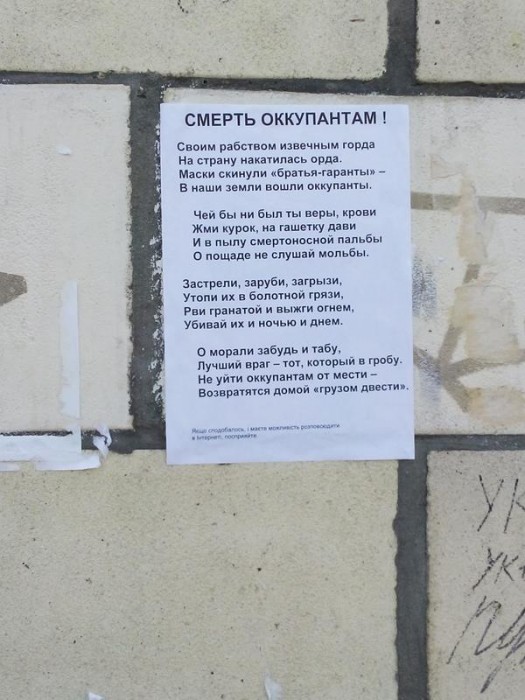 СМЕРТЬ ОККУПАНТАМ !
Своим рабством извечным горда
На страну накатилась орда.
Маски скинули «братья-гаранты» –
В наши земли вошли оккупанты.
Чей бы ни был ты веры, крови
Жми курок, на гашетку дави
И в пылу смертоносной пальбы
О пощаде не слушай мольбы.
Застрели, заруби, загрызи,
Утопи их в болотной грязи,
Рви гранатой и выжги огнем,
Убивай их и ночью и днем.
О морали забудь и табу,
Лучший враг – тот, который в гробу.
Не уйти оккупантам от мести –
Возвратятся домой «грузом двести».
Якщо сподобалось, і маєте можливість розповсюдити
в Інтернеті, посприяйте
УК
УК